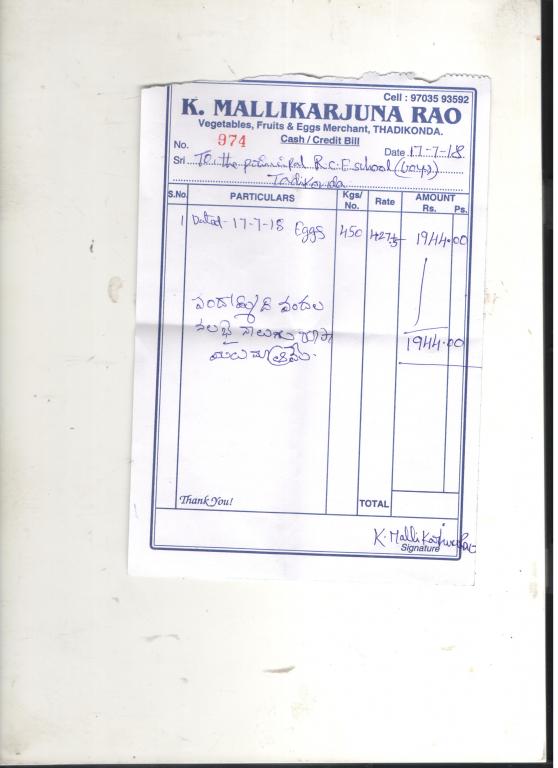 Cell : 97035 93592
K. MALLIKARJUNA RAO
Vegetables, Fruits & Eggs Merchant, THADIKONDA.
Cash / Credit Bill
No. 974 Date 17-7-18
Sri To the principal R.C.E school (boys)
Tadikonda
S.No. PARTICULARS Kgs/ No. Rate AMOUNT Rs. Ps.
1 Dated- 17-7-18 Eggs 450 1944.00
వందల
నలభై నాలుగు
మాత్రమే.
1944.00
Thank You! TOTAL
K. Mallikarjuna Rao
Signature